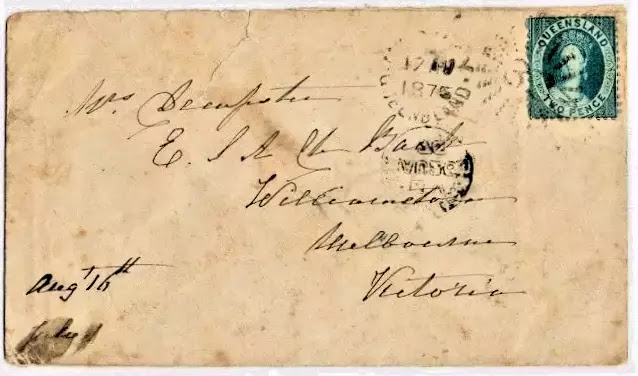 QUEENSLAND
TWO PENCE
187
QUEENSLAND
Mrs
E. S & A Ch Bank
Williamstown
Melbourne
Victoria
Aug 16th
July